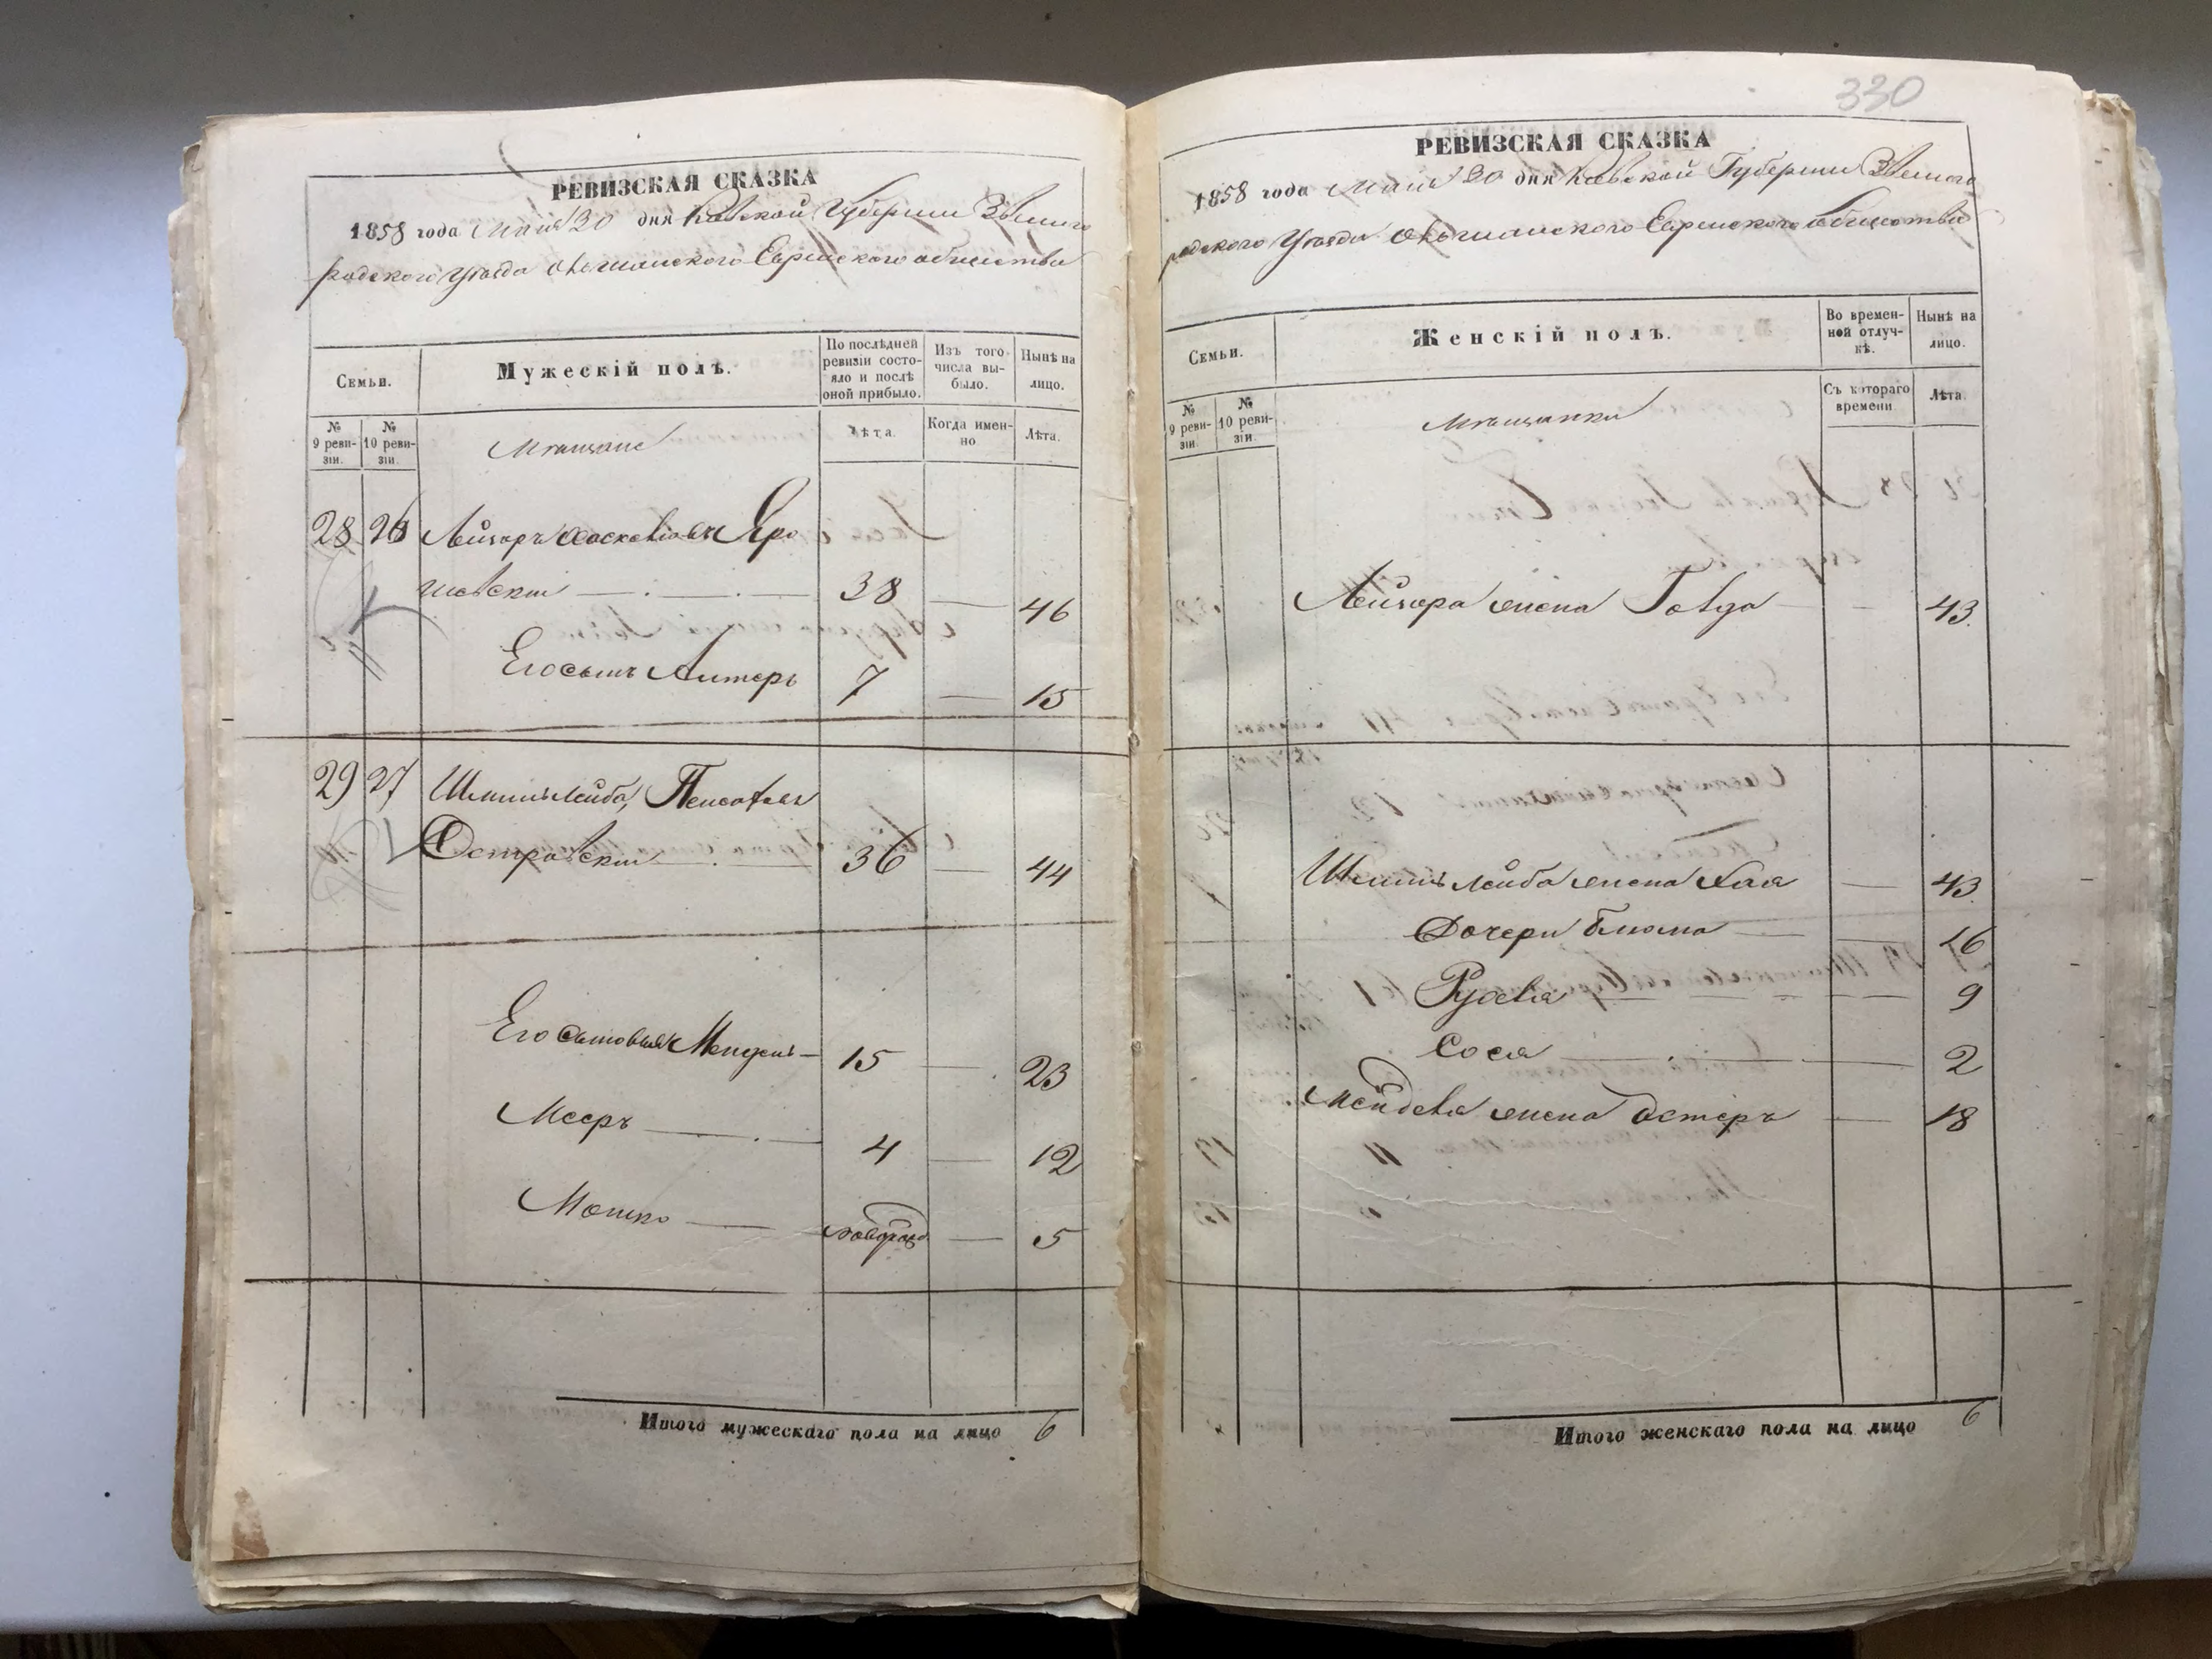 РЕВИЗСКАЯ СКАЗКА
1858 года Мая 20 дня Киевской Губернии Звениго
родского Уѣзда Ольшанского Еврейского общества
Семьи.
Мужескій полъ.
По послѣдней ревизіи состояло и послѣ оной прибыло.
Изъ того числа выбыло.
Нынѣ на лицо.
№ 9 ревизіи.
№ 10 ревизіи.
Мѣщане
Лѣта.
Когда именно
Лѣта.
28 26 Лейзоръ Яро
шевскій 38 — 46
Его сынъ Литеръ 7 — 15
29 27 Шмиль Лейба
Островскій 36 — 44
Его сыновья Мендель 15 — 23
Мееръ 4 — 12
Мошко — 5
Итого мужескаго пола на лицо 6
330
РЕВИЗСКАЯ СКАЗКА
1858 года Мая 20 дня Киевской Губерніи Звениго
родского Уѣзда Ольшанского Еврейского общества
Семьи.
Женскій полъ.
Во временной отлучкѣ.
Нынѣ на лицо.
№ 9 ревизіи.
№ 10 ревизіи.
Мѣщанки
Съ котораго времени
Лѣта.
Лейзора жена Голда — 43.
Шмиль Лейба жена Хая — 43.
Дочери Блюма — 16
Рухля — 9
Сося — 2
Менделя жена Эстеръ — 18
Итого женскаго пола на лицо 6